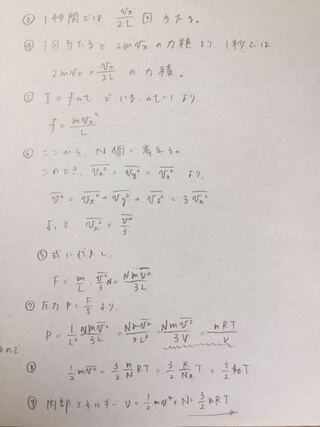 ③ 1秒間では vx/2L 回あたる。
④ 1回当たると 2mvx の力積より、1秒では
2mvx × vx/2L の力積。
⑤ I = fΔt で I は、Δt=1 より
f = mvx²/L
⑥ ここから、N個で考える。
このとき、vx² = vy² = vz² より、
v² = vx² + vy² + vz² = 3vx²
よって vx² = v²/3
⑤式に代入し、
F = m/L · v²/3 N = Nmv²/3L
⑦ 圧力 P = F/S より、
P = 1/L² Nmv²/3L = Nmv²/3L³ = Nmv²/3V = nRT/V
⑧ 1/2 mv² = 3/2 n/N RT = 3/2 R/NA T = 3/2 kBT
⑨ 内部エネルギー U = 1/2 mv² × N = 3/2 nRT